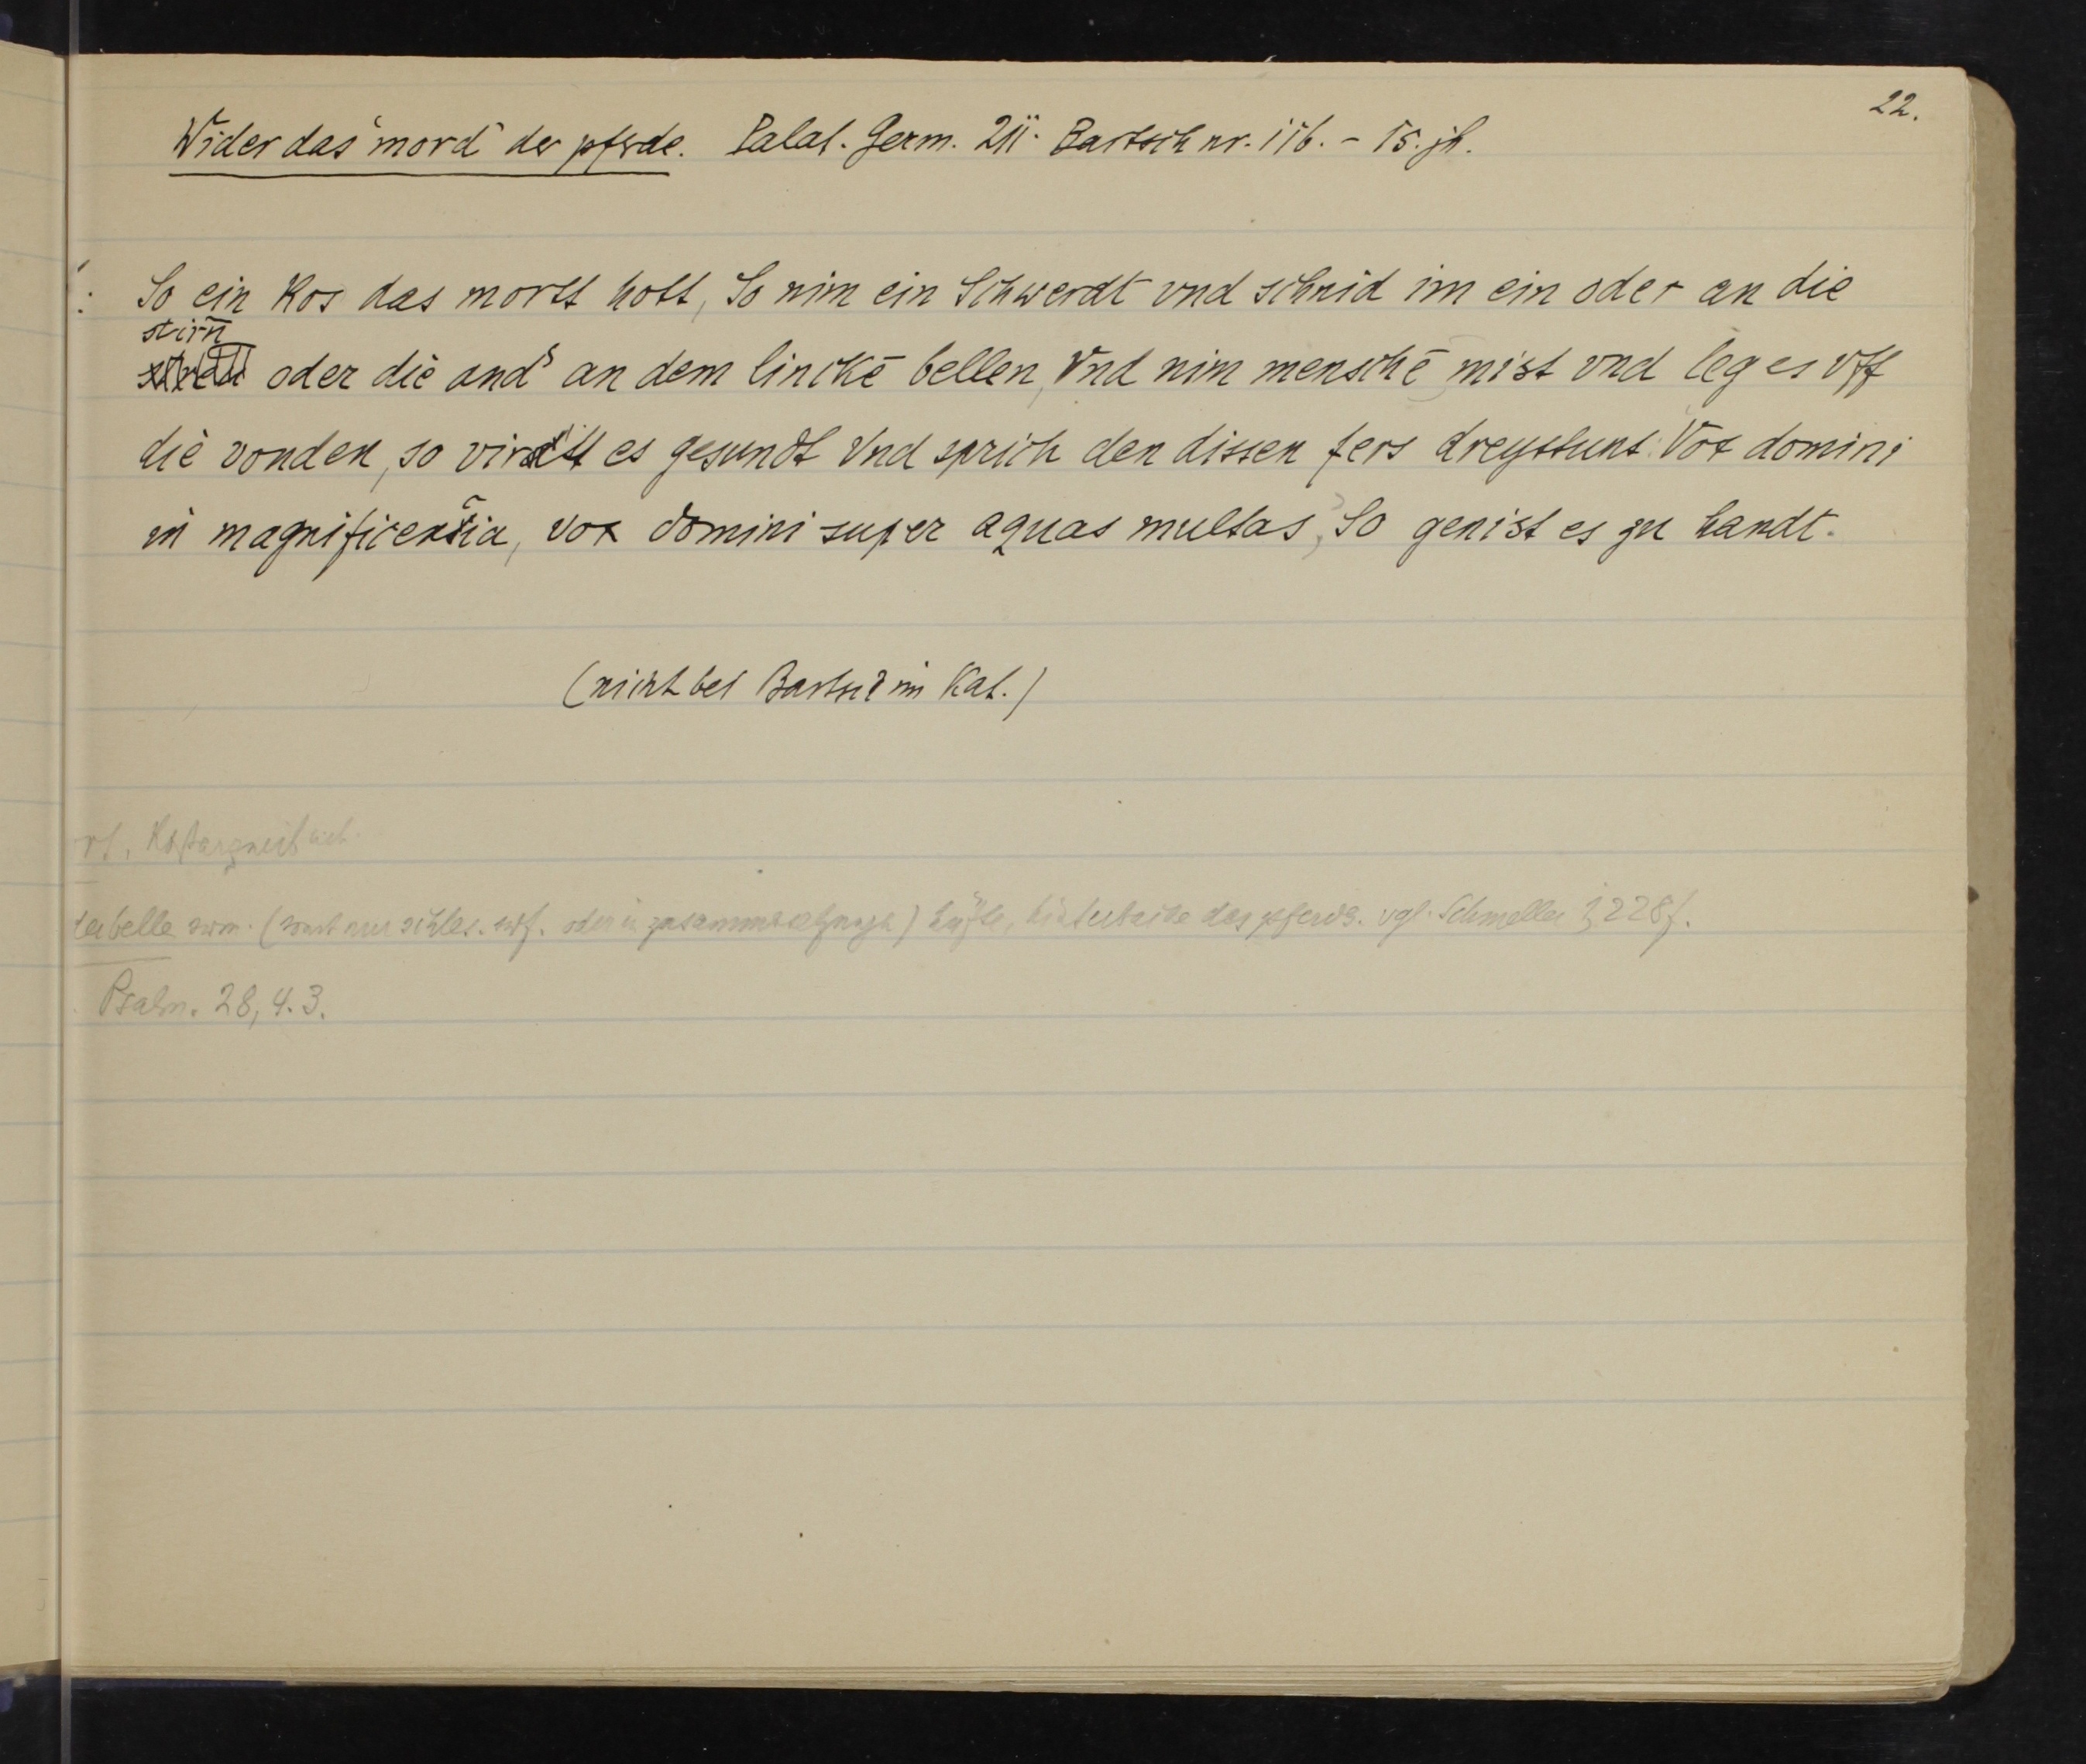 22.
Wider das "mord" der pferde. Palat. Germ. 211. Bartsch nr. 116. – 15. jh.
So ein Ros das mortt hott, So nim ein Schwerdt vnd schnid im ein oder an die
stirn
oder die and' an dem linckē bellen, Vnd nim menschē mist vnd leg es vff
die vonden, so virdtt es gesundt Vnd sprich den dissen fers dreystunt: Vox domini
in magnificentia, vox domini super aquas multas, So genist es zu handt.
(nicht bei Bartsch im Kat.)
belle swm. (sonst nur schles. swf. oder in zusammensetzungen) hüfte, hinterbacke des pferds. vgl. Schmeller 1, 228f.
Psalm. 28, 4. 3.